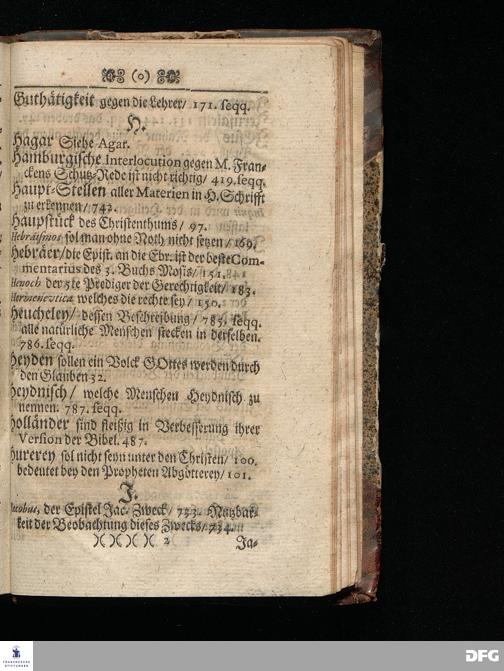 (o)
Guthätigkeit gegen die Lehrer/ 171. seqq.
H.
Hagar Siehe Agar.
Hamburgische Interlocution gegen M. Fran-
ckens Schutz-Rede ist nicht richtig/ 419. seqq.
Haupt-Stellen aller Materien in H. Schrifft
zu erkennen/ 742.
Haupstück des Christenthums/ 97.
Hebraismos sol man ohne Noth nicht setzen/ 169.
Hebräer/ die Epist. an die Ebr. ist der beste Com-
mentarius des 3. Buchs Mosis/ 151.
Henoch der 5te Prediger der Gerechtigkeit/ 183.
Hermenevtica welches die rechte sey/ 150.
Heucheley/ dessen Beschreibung/ 785. seqq.
alle natürliche Menschen stecken in derselben.
786. seqq.
Heyden sollen ein Volck GOttes werden durch
den Glauben 32.
Heydnisch/ welche Menschen Heydnisch zu
nennen. 787. seqq.
Holländer sind fleißig in Verbesserung ihrer
Version der Bibel. 487.
Hurerey sol nicht seyn unter den Christen/ 100.
bedeutet bey den Propheten Abgötterey/ 101.
J.
Jacobus, der Epistel Jac. Zweck/ 733. Nutzbar-
keit der Beobachtung dieses Zwecks/ 734.
)( )( )( )( 2 Ja-
FRANCKESCHE
STIFTUNGEN
DFG